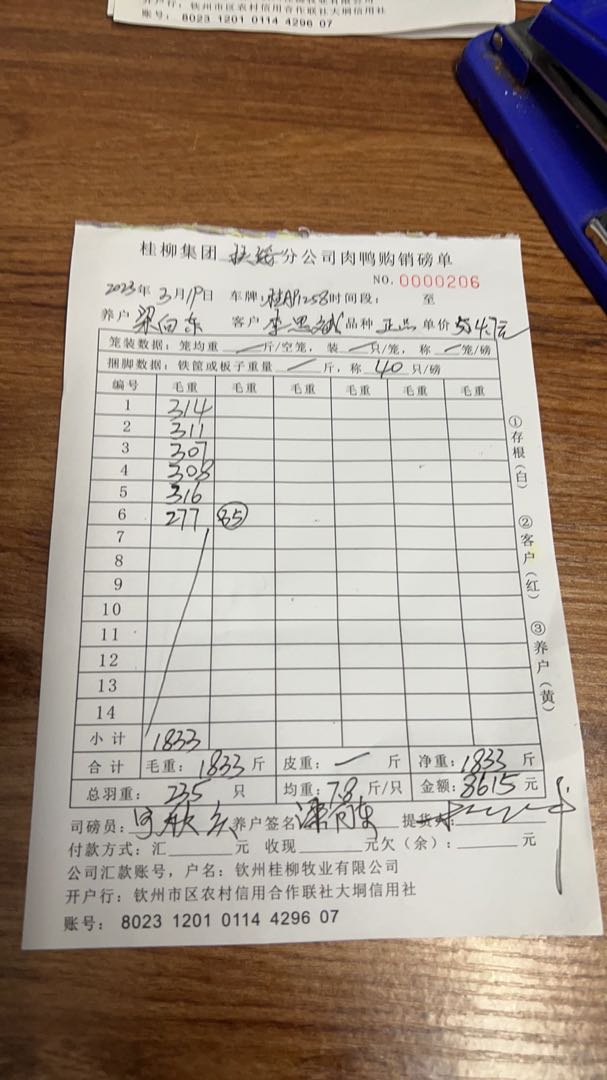 开户行：钦州市区农村信用合作联社大垌信用社
账号：8023 1201 0114 4296 07
桂柳集团 分公司肉鸭购销磅单
NO. 0000206
2023年3月19日 车牌 时间段： 至
养户 梁 东 客户 李思斌 品种 正品 单价 4.7元
笼装数据：笼均重 / 斤/空笼，装 / 只/笼，称 / 笼/磅
捆脚数据：铁筐或板子重量 / 斤，称 40 只/磅
编号 毛重 毛重 毛重 毛重 毛重
1 314
2 311
3 307
4 308
5 316
6 277 35
7
8
9
10
11
12
13
14
小计 1833
合计 毛重：1833斤 皮重：/ 斤 净重：1833斤
总羽重：235 只 均重：7.8 斤/只 金额：8615元
司磅员： 养户签名 提货人：
付款方式：汇 元 收现 元欠（余）： 元
公司汇款账号，户名：钦州桂柳牧业有限公司
开户行：钦州市区农村信用合作联社大垌信用社
账号：8023 1201 0114 4296 07
①存根（白）
②客户（红）
③养户（黄）